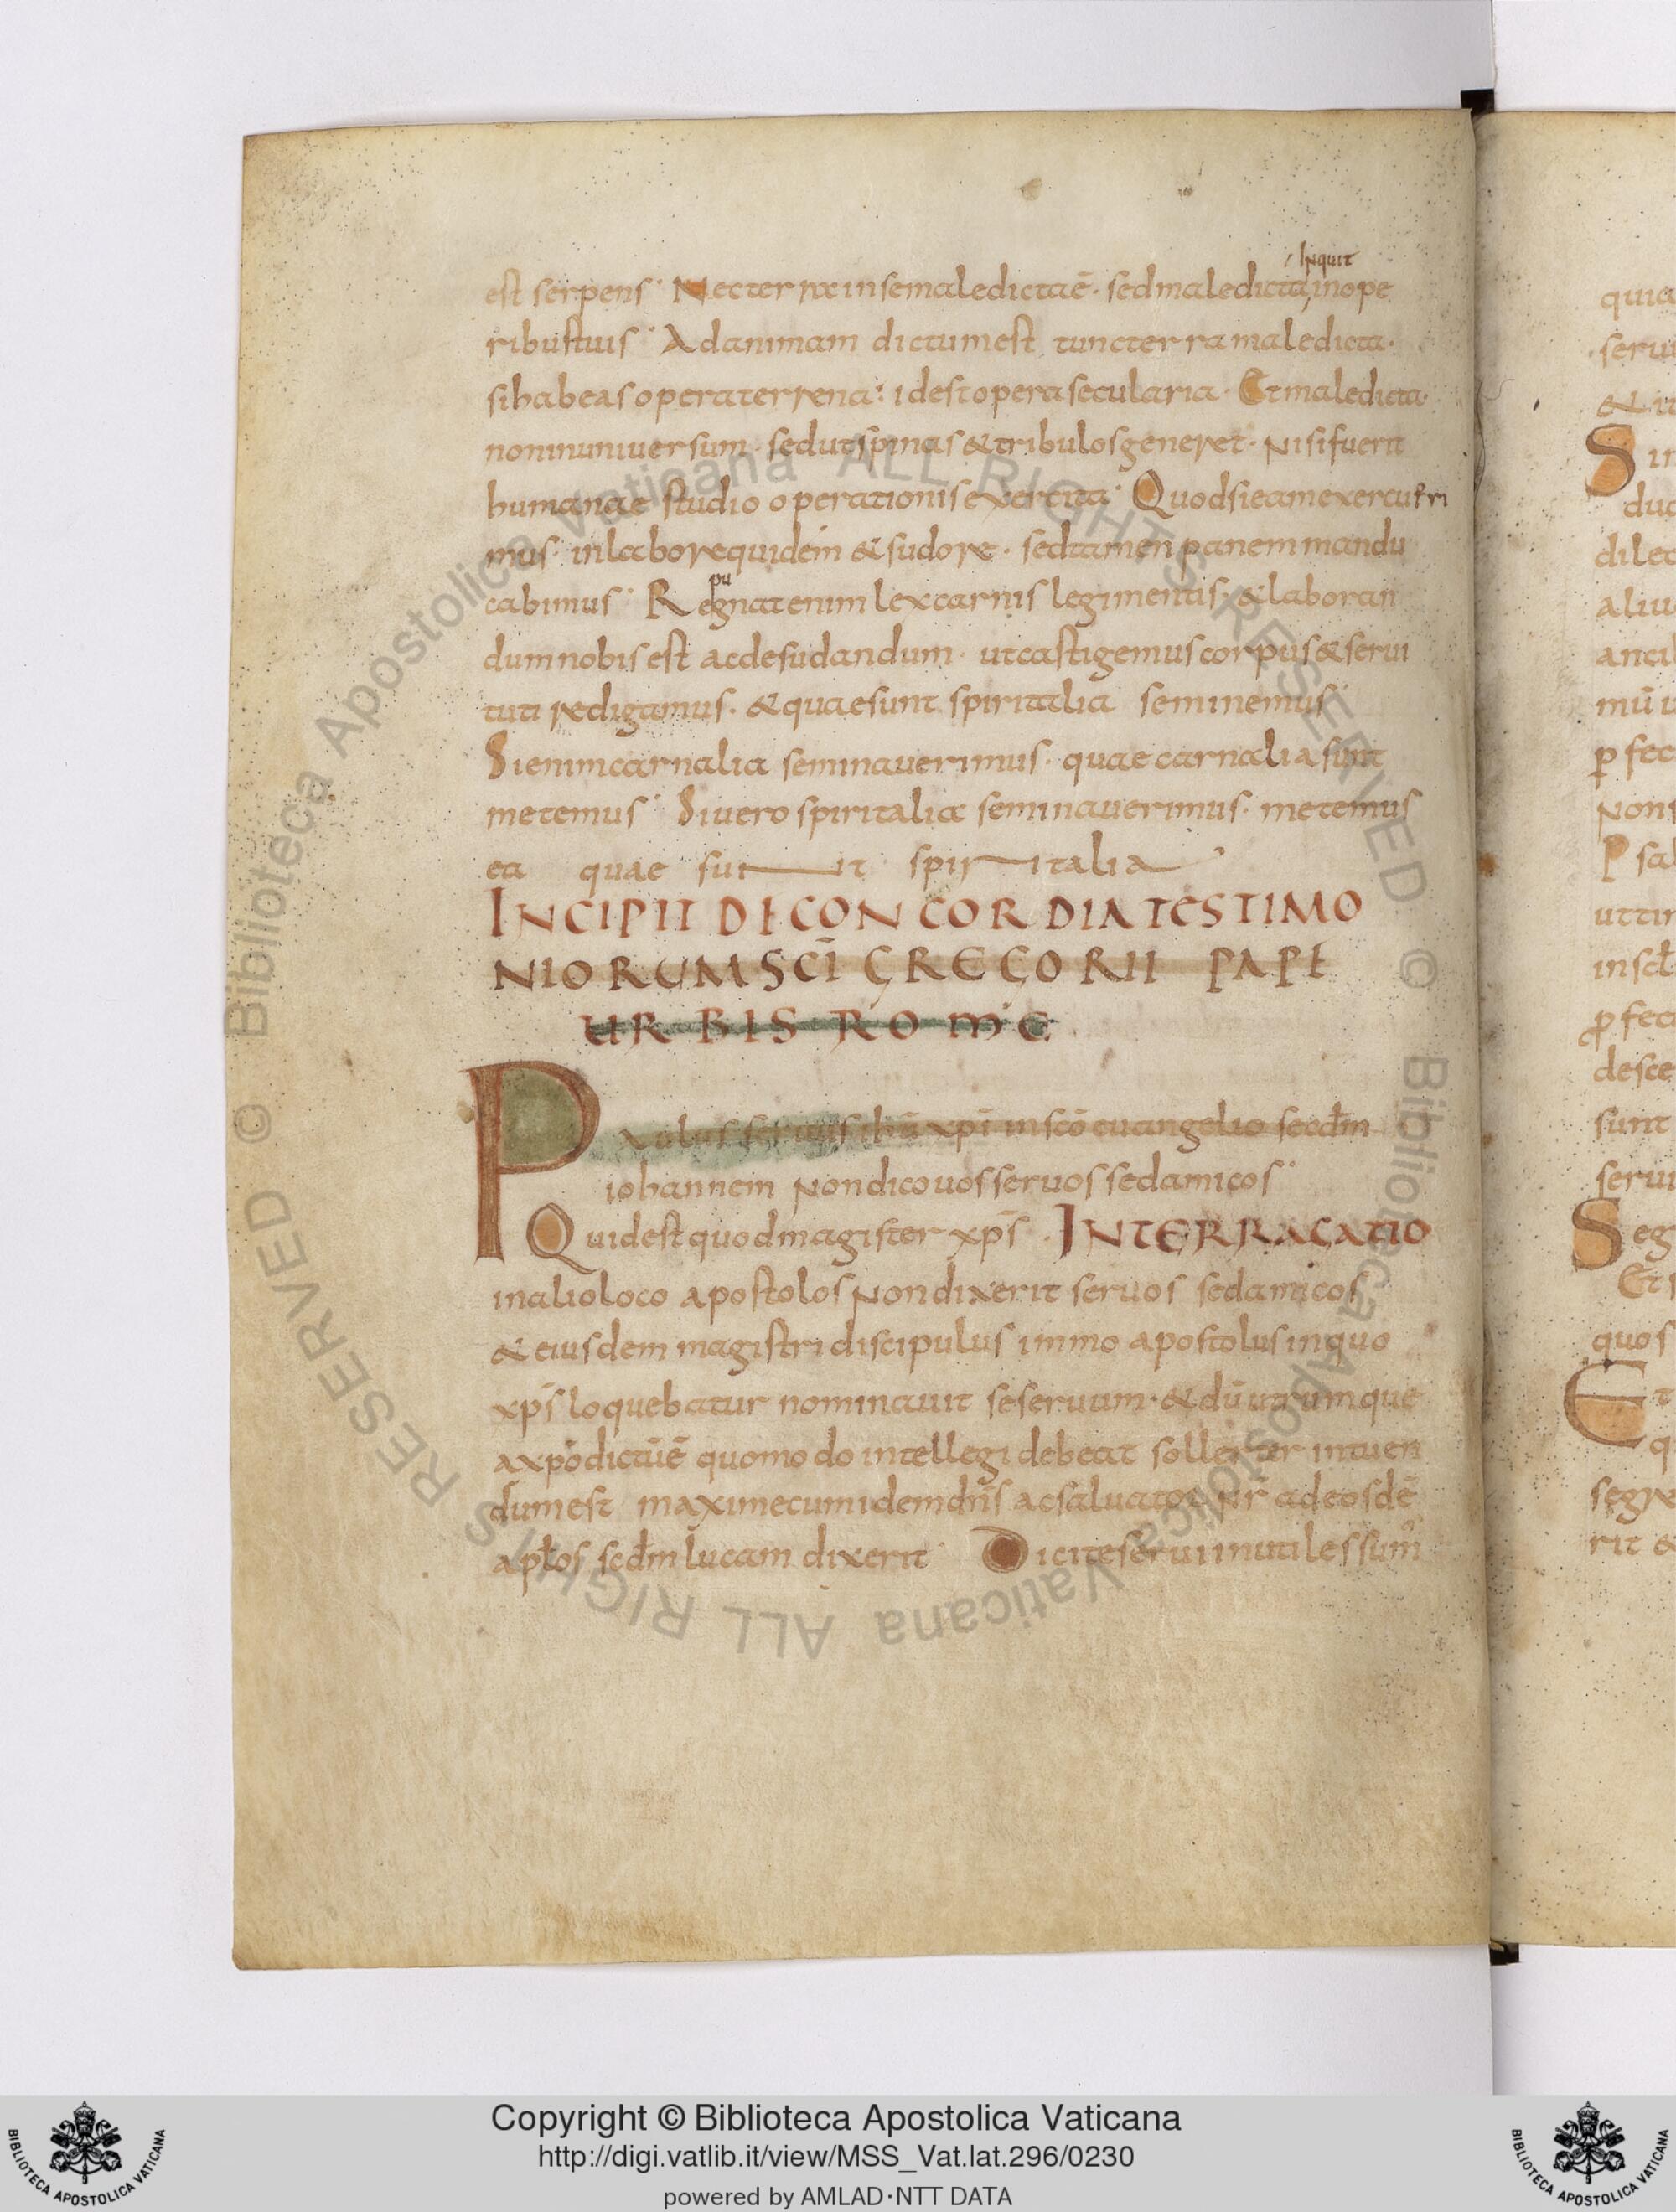 inquit
est serpens · Nec terra in se maledicta ē · sed maledicta in ope
ribus tuis · Ad animam dictum est tunc terra maledicta ·
si habeas opera terrena : id est opera secularia · Et maledicta ·
non in universum · sed ut spinas & tribulos generet · Nisi fuerit
humanae studio operationis exercita · Quod si eam exercueri
mus · in labore quidem & sudore · sed tamen panem mandu
pu
cabimus · Regnat enim lex carnis legi mentis · & laboran
dum nobis est ac desudandum · ut castigemus corpus & servi
tuti redigamus · & quae sunt spiritalia seminemus ·
Si enim carnalia seminaverimus · quae carnalia sunt
metemus · Si vero spiritalia seminaverimus · metemus
ea quae sunt spiritalia
INCIPIT DE CONCORDIA TESTIMO
NIORUM SCĪ GREGORII PAPE
URBIS ROME
Paulus servus ihū xpī in scō euangelio secdm
iohannem Non dico vos servos sed amicos ·
Quid est quod magister xp̄s · INTERRAGATIO
in alio loco apostolos Non dixerit servos sed amicos
& eiusdem magistri discipulus immo apostolus in quo
xp̄s loquebatur nominavit se servum · & dū utrumque
a xpō dictū ē quomodo intellegi debeat sollerter intuen
dum est maxime cum idem dn̄s ac salvator nr̄ ad eosdē
aptos scdm lucam dixerit · Dicite servi inutiles sum
© Biblioteca Apostolica Vaticana ALL RIGHTS RESERVED
© Biblioteca Apostolica Vaticana ALL RIGHTS RESERVED
Copyright © Biblioteca Apostolica Vaticana
http://digi.vatlib.it/view/MSS_Vat.lat.296/0230
powered by AMLAD·NTT DATA
BIBLIOTECA APOSTOLICA VATICANA
BIBLIOTECA APOSTOLICA VATICANA